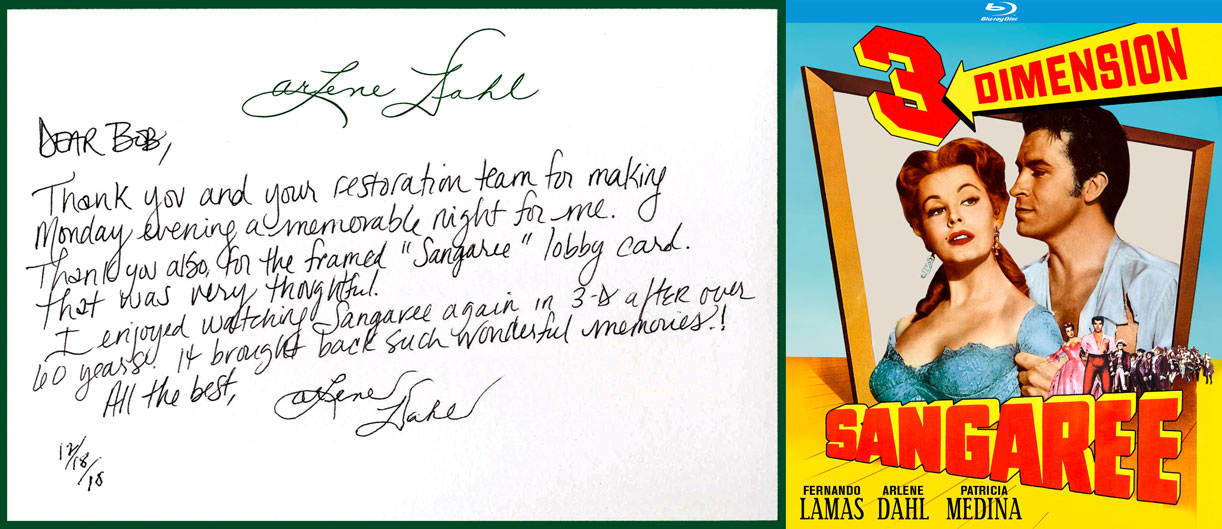 arlene Dahl
DEAR BOB,
Thank you and your restoration team for making
Monday evening a memorable night for me.
Thank you also, for the framed "Sangaree" lobby card.
That was very thoughtful.
I enjoyed watching Sangaree again in 3-D after over
60 years! It brought back such wonderful memories!
All the best,
arlene Dahl
12/18/18
Blu-ray Disc
3 DIMENSION
SANGAREE
FERNANDO LAMAS
ARLENE DAHL
PATRICIA MEDINA